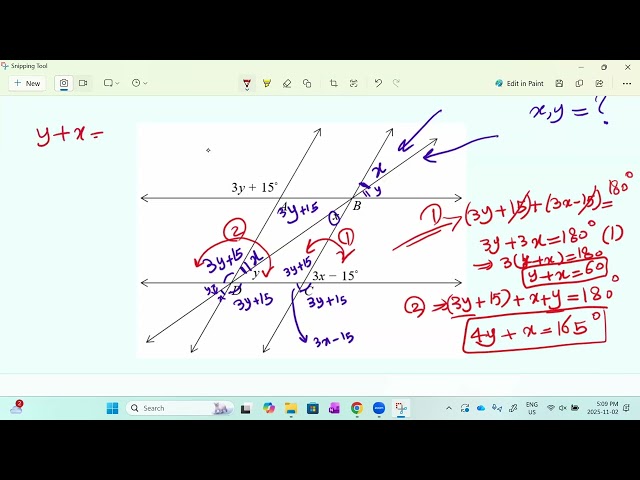 Snipping Tool
New
Edit in Paint
x, y = ?
y + x =
3y + 15°
x
y
3y+15
A
B
x
2
1
3y+15
x
y
3y+15
3x − 15°
y
x
3y+15
3y+15
3x-15
1 → (3y + 15) + (3x-15) = 180°
3y + 3x = 180° (1)
⇒ 3(y+x) = 180
y + x = 60°
2 ⇒ (3y + 15) + x + y = 180°
4y + x = 165°
2
Search
ENG
US
5:09 PM
2025-11-02